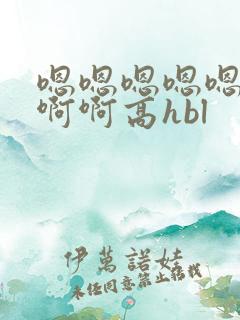 嗯嗯嗯嗯嗯
啊啊高hbl
伊萬諾娃
未经同意禁止转载